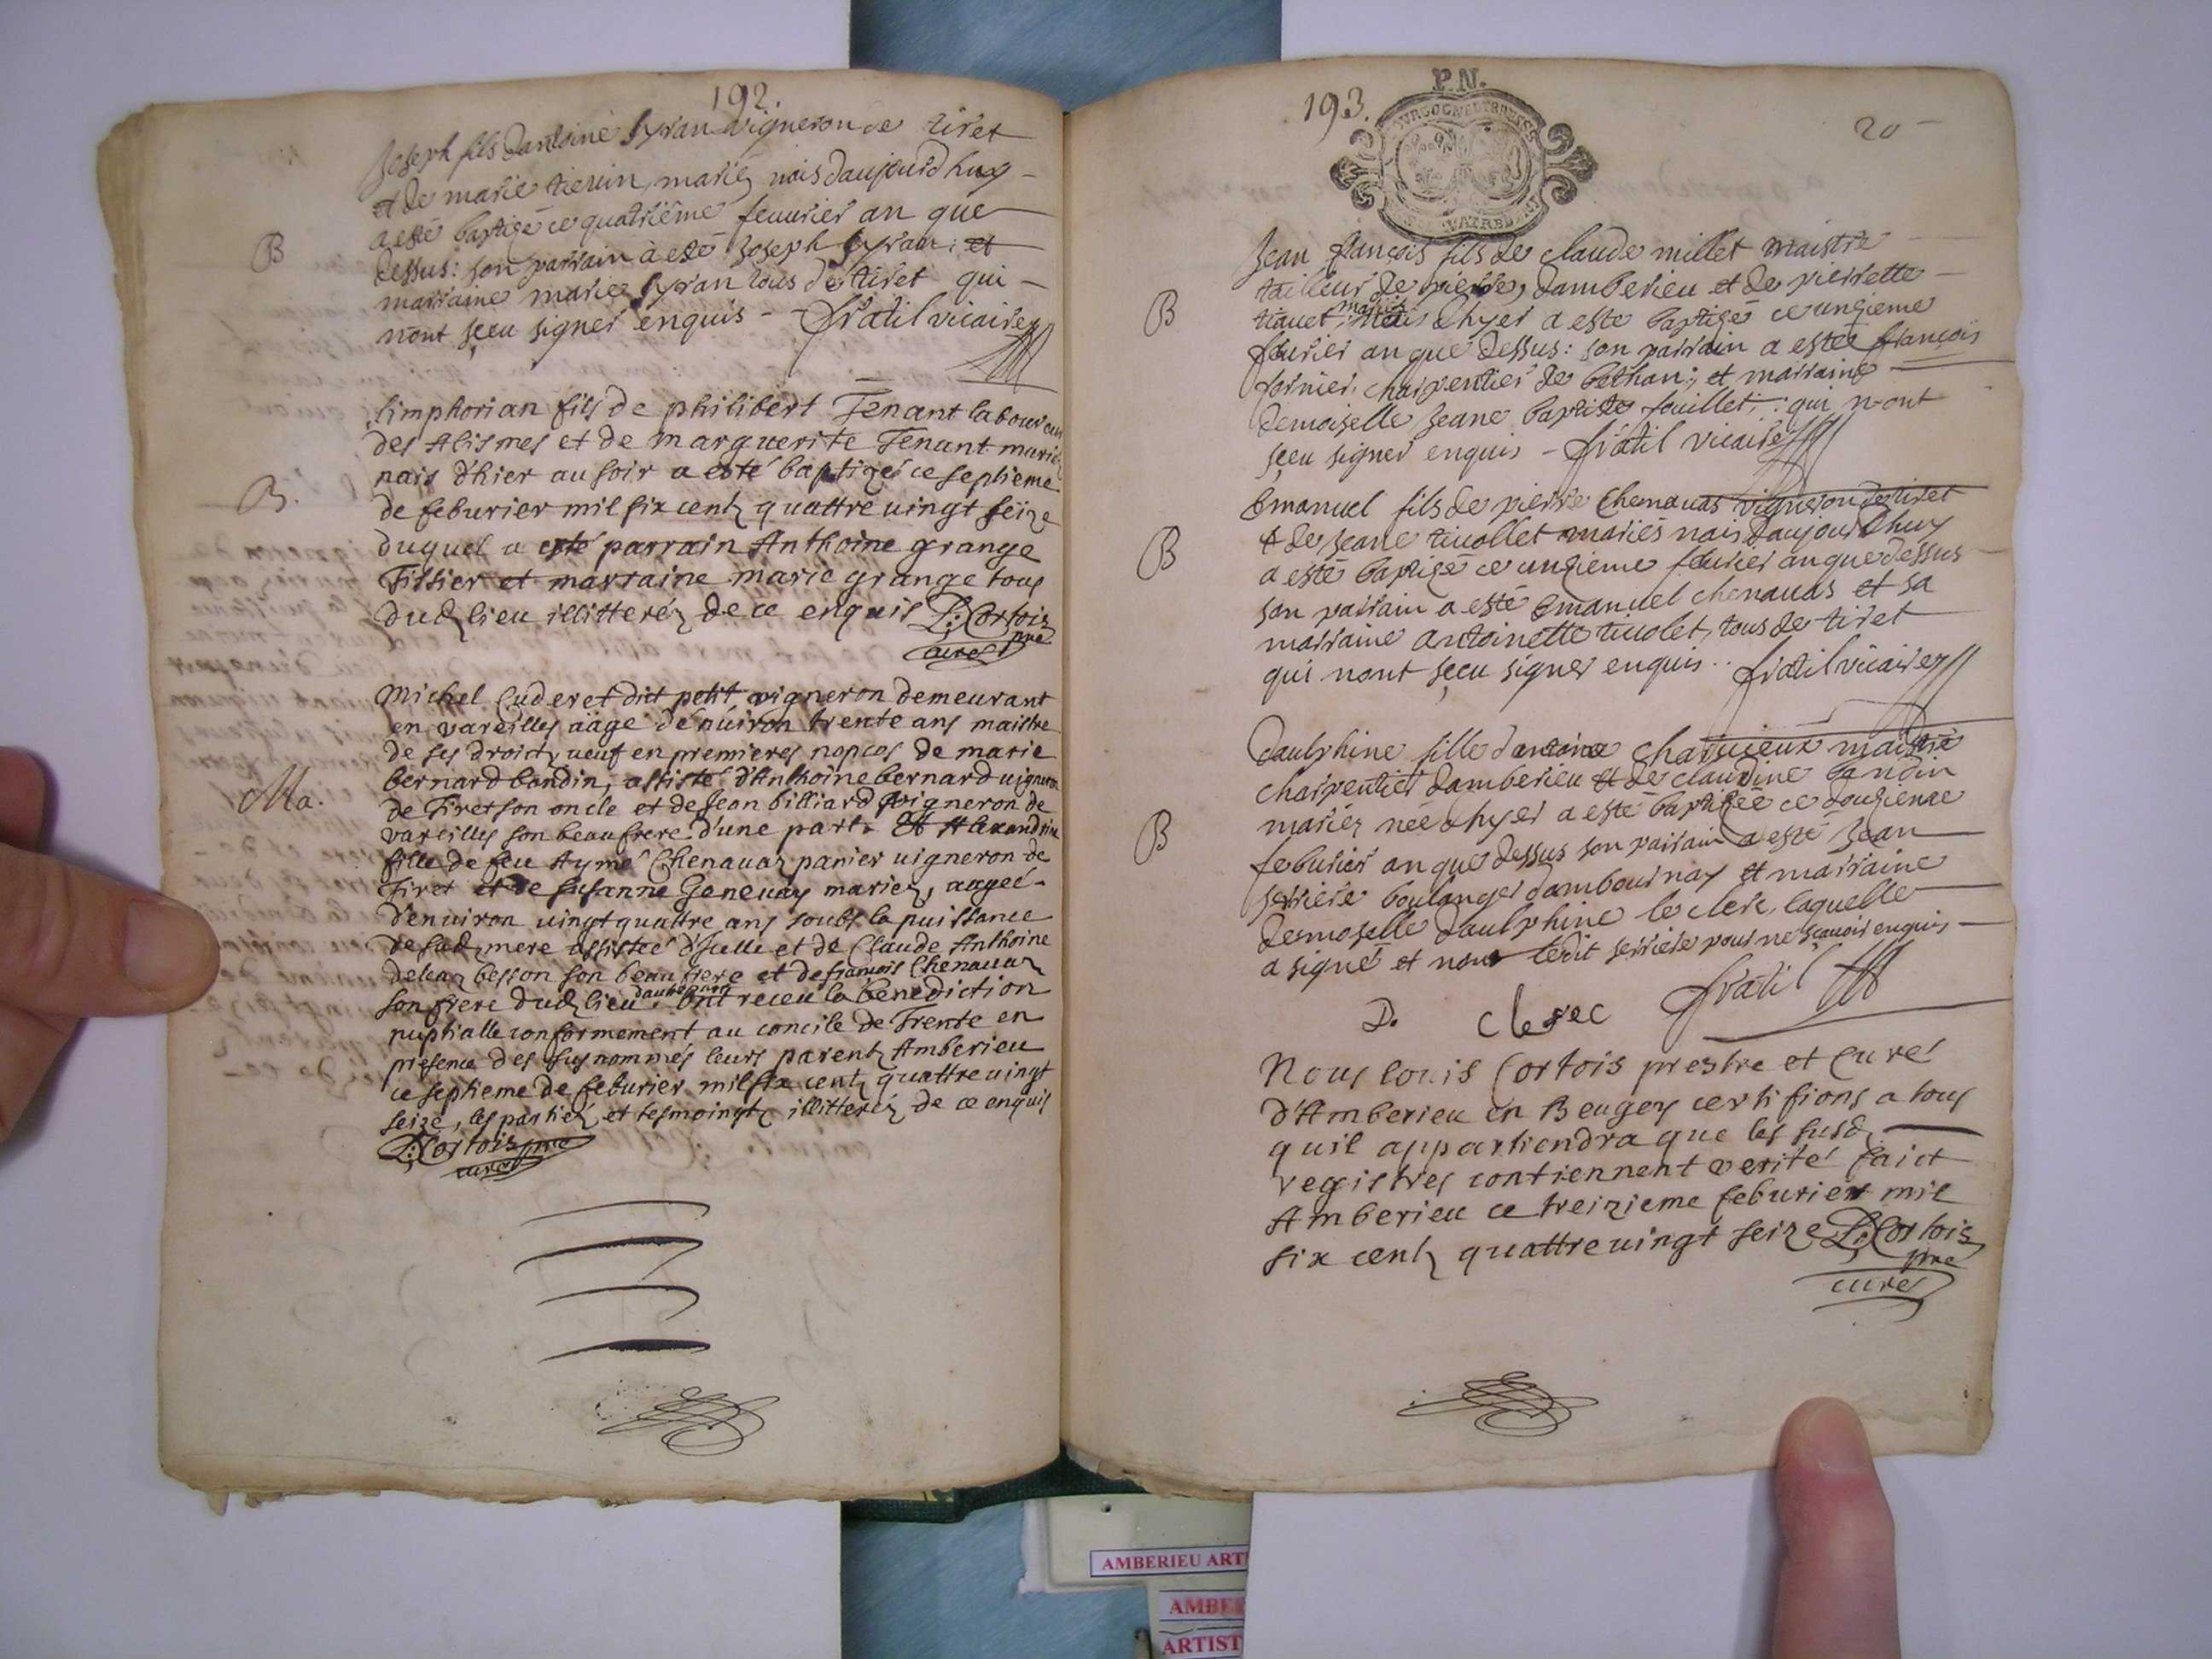 192.
B
Joseph fils dantoine Syran vigneron de tiret
et de marie tievin mariez nais daujourdhuy
a esté baptizé ce quatrième feuurier an que
dessus: son parrain à esté Joseph Syran; et
marraine marie Syran tous de tiret qui
nont sçeu signer enquis - fratil vicaire
B.
simphorian fils de philibert Tenant laboureur
des Alismes et de marguerite Tenant mariez
nais d'hier au soir a esté baptizé ce septieme
de feburier mil six centz quattre uingt seize
duquel a esté parrain Anthoine grange
Tissier et marraine marie grange tous
dudz lieu illitteréz de ce enquis L: Cortois
pre
curé
Ma.
Michel Cuderet dit petit vigneron demeurant
en vareilles aäge d'enuiron trente ans maistre
de ses droictz ueuf en premieres nopces de marie
bernard bondin, assisté d'Anthoine bernard uigneron
de Tiret son oncle et de Jean billiard vigneron de
vareilles son beaufrere d'une part. Et Alexandrine
fille de feu Aymé Chenauaz panier uigneron de
Tiret et de susanne Geneuay mariez, aageé
d'enuiron uingt quattre ans soubs la puissance
de sadz mere assistéé d'Icelle et de Claude Anthoine
besson son beaufrere et de françois Chenauaz
son frere dudz lieu daultre part Ont receu la benediction
nuptialle conformement au concile de Trente en
presence des susnommés leurs parentz Amberieu
ce septieme de feburier mil six centz quattre uingt
seize, les partiez et tesmoingtz illitteréz de ce enquis
L: Cortois pre
curé
193.
P.N.
20
B
Jean françois fils de claude millet maistre
tailleur de pierre, damberieu et de pierrette
mariés
nais dhyer a esté baptizé ce unzieme
feurier an que dessus: son parrain a esté françois
fornier, charpentier de bethan; et marraine
demoiselle Jeane baptiste fouillet; qui n'ont
sçeu signer enquis - fratil vicaire
B
Emanuel fils de pierre Chenauas vigneron de tiret
et de Jeane tiuollet mariés nais daujourdhuy
a esté baptizé ce unzieme feurier an que dessus
son parrain a esté Emanuel chenauas et sa
marraine antoinette tiuolet, tous de tiret
qui nont sçeu signer enquis.. fratil vicaire
B
Daulphine fille d'antoine charuieux maistre
charpentier damberieu et de claudine bandin
mariéz née dhyer a esté baptizée ce douzieme
feburier an que dessus son parrain a esté Jean
serriere boulanger dambournay et marraine
demoselle daulphine le clerc, laquelle
a signé et non ledit serriere pour ne sçauoir enquis
D. Clerec fratil
Nous louis Cortois prestre et Curé
d'Amberieu en Beugey certifions a tous
quil appartiendra que les susdz
registres contiennent verité faict
Amberieu ce treizieme feburier mil
six centz quattre uingt seize L: Cortois
pre
curé
AMBERIEU ART
AMBE
ARTIST